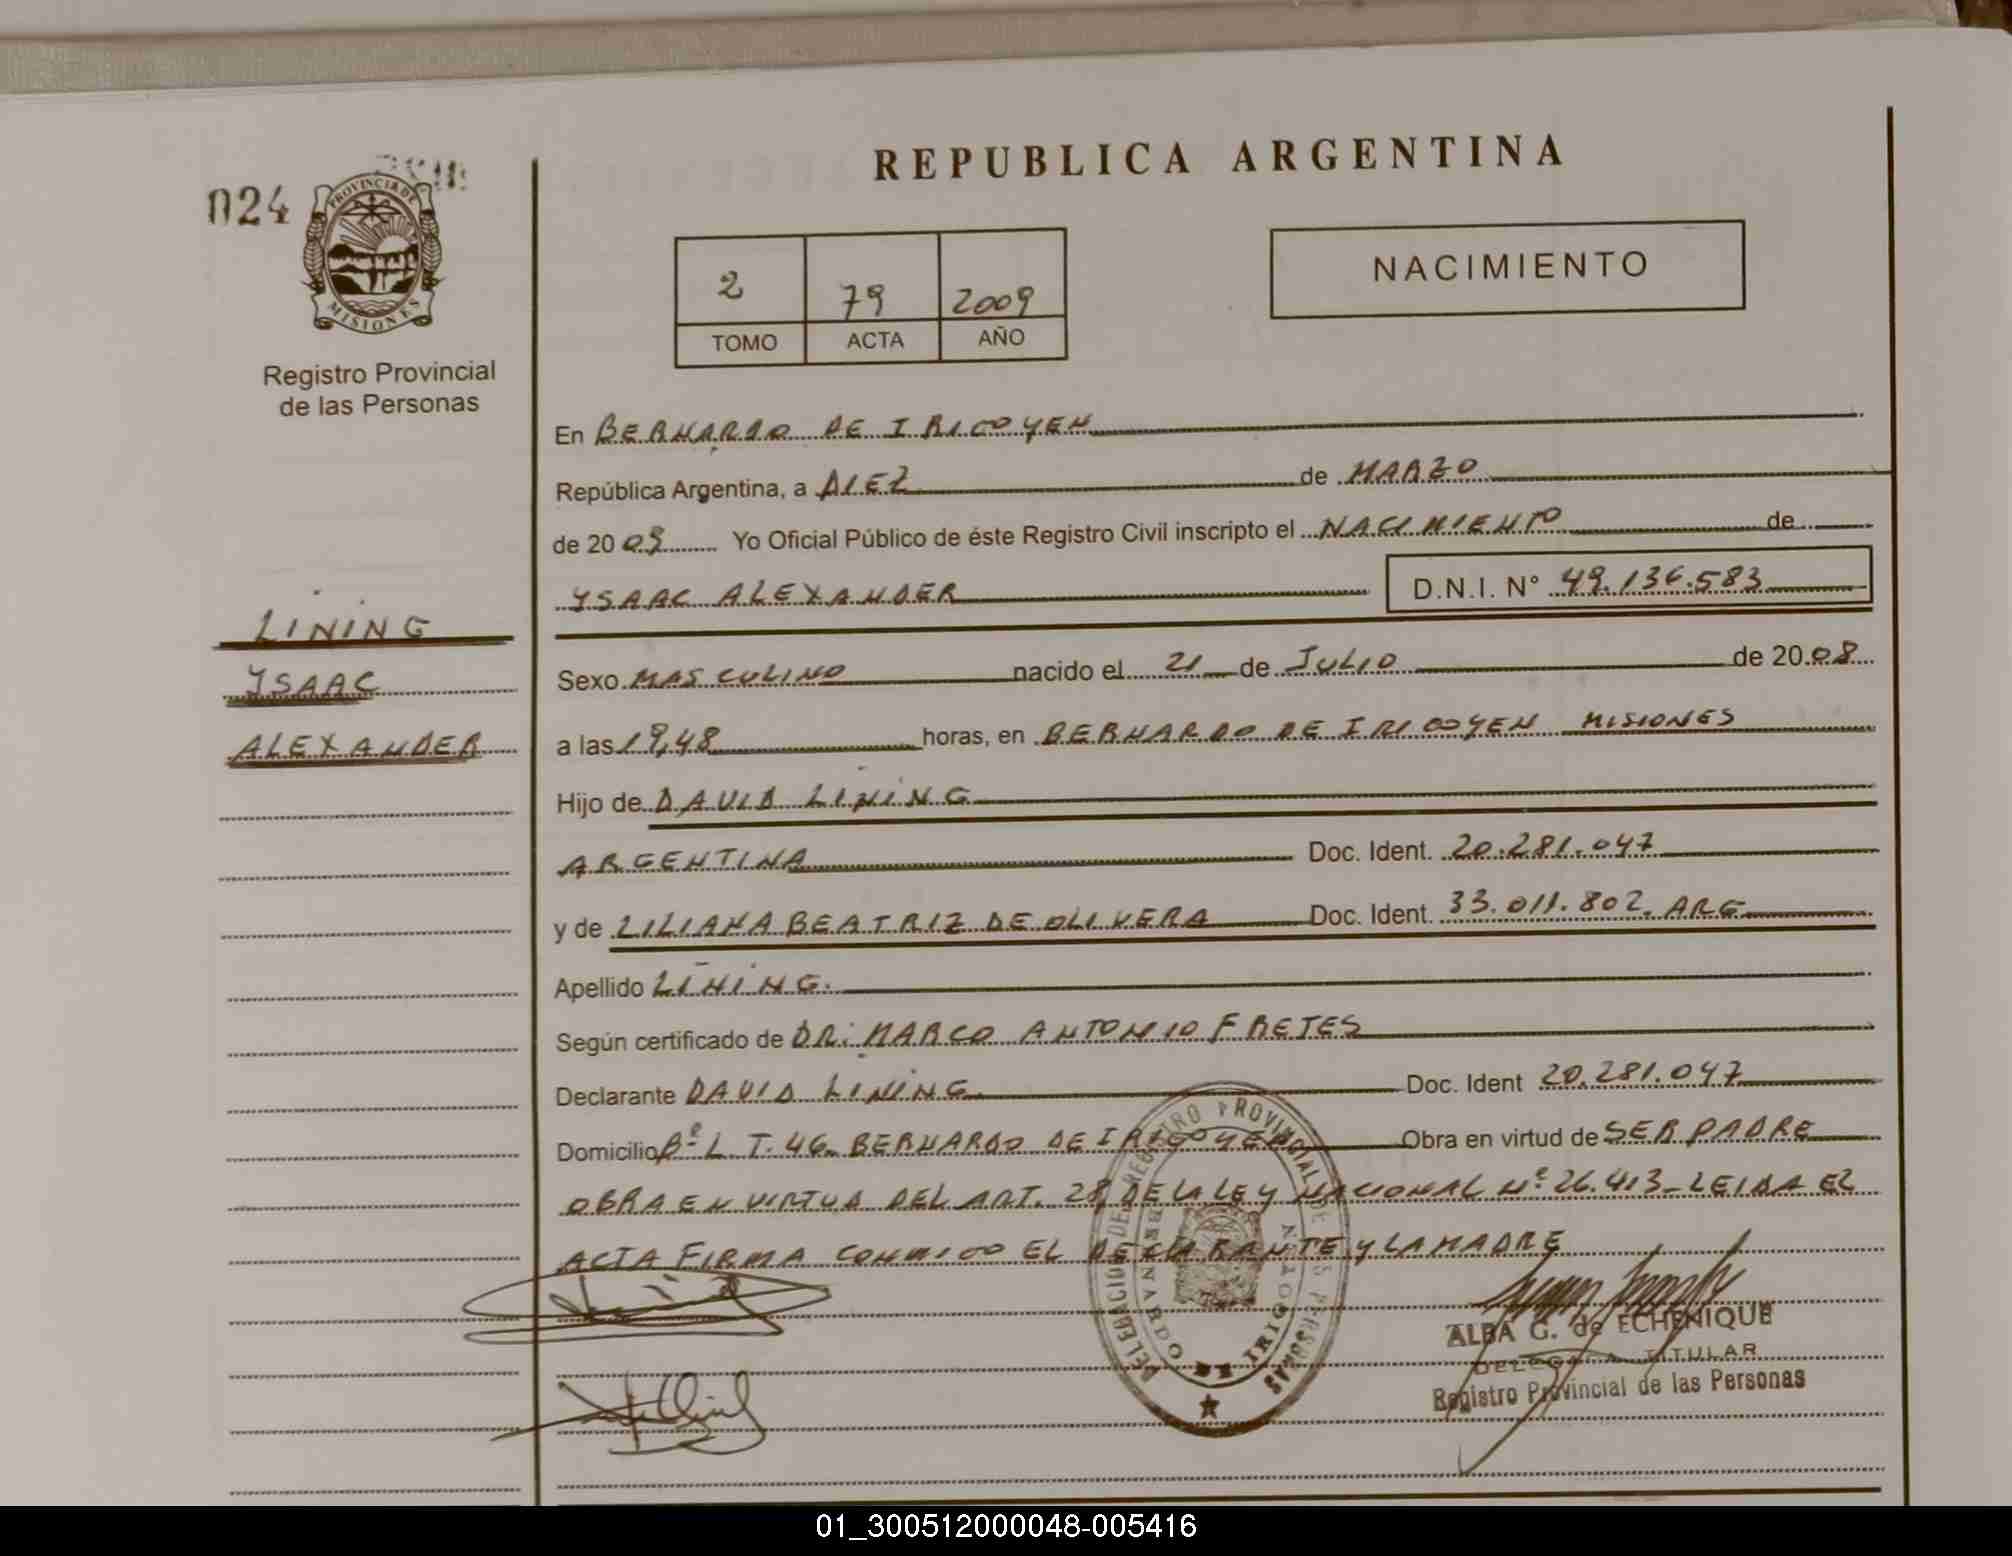 024
PROVINCIA DE
MISIONES
Registro Provincial
de las Personas
REPUBLICA ARGENTINA
2 79 2009
TOMO ACTA AÑO
NACIMIENTO
En BERNARDO DE IRIGOYEN
República Argentina, a DIEZ de MARZO
de 2009 Yo Oficial Público de éste Registro Civil inscripto el NACIMIENTO de
YSAAC ALEXANDER D.N.I. N° 49.136.583
LINING
YSAAC
ALEXANDER
Sexo MASCULINO nacido el 21 de JULIO de 2008
a las 19,48 horas, en BERNARDO DE IRIGOYEN MISIONES
Hijo de DAVID LINING
ARGENTINA Doc. Ident. 20.281.047
y de LILIANA BEATRIZ DE OLIVERA Doc. Ident. 33.011.802. ARG
Apellido LINING.
Según certificado de DR: MARCO ANTONIO FRETES
Declarante DAVID LINING Doc. Ident 20.281.047
Domicilio Bº L. T. 46 BERNARDO DE IRIGOYEN Obra en virtud de SER PADRE
OBRA EN VIRTUD DEL ART. 28 DE LA LEY NACIONAL Nº 26.413 - LEIDA EL
ACTA FIRMA CONMIGO EL DECLARANTE Y LA MADRE
DELEGACION DE REGISTRO PROVINCIAL DE LAS PERSONAS
BERNARDO DE IRIGOYEN
MISIONES
ALBA G. de ECHENIQUE
DELEGADA TITULAR
Registro Provincial de las Personas
01_300512000048-005416